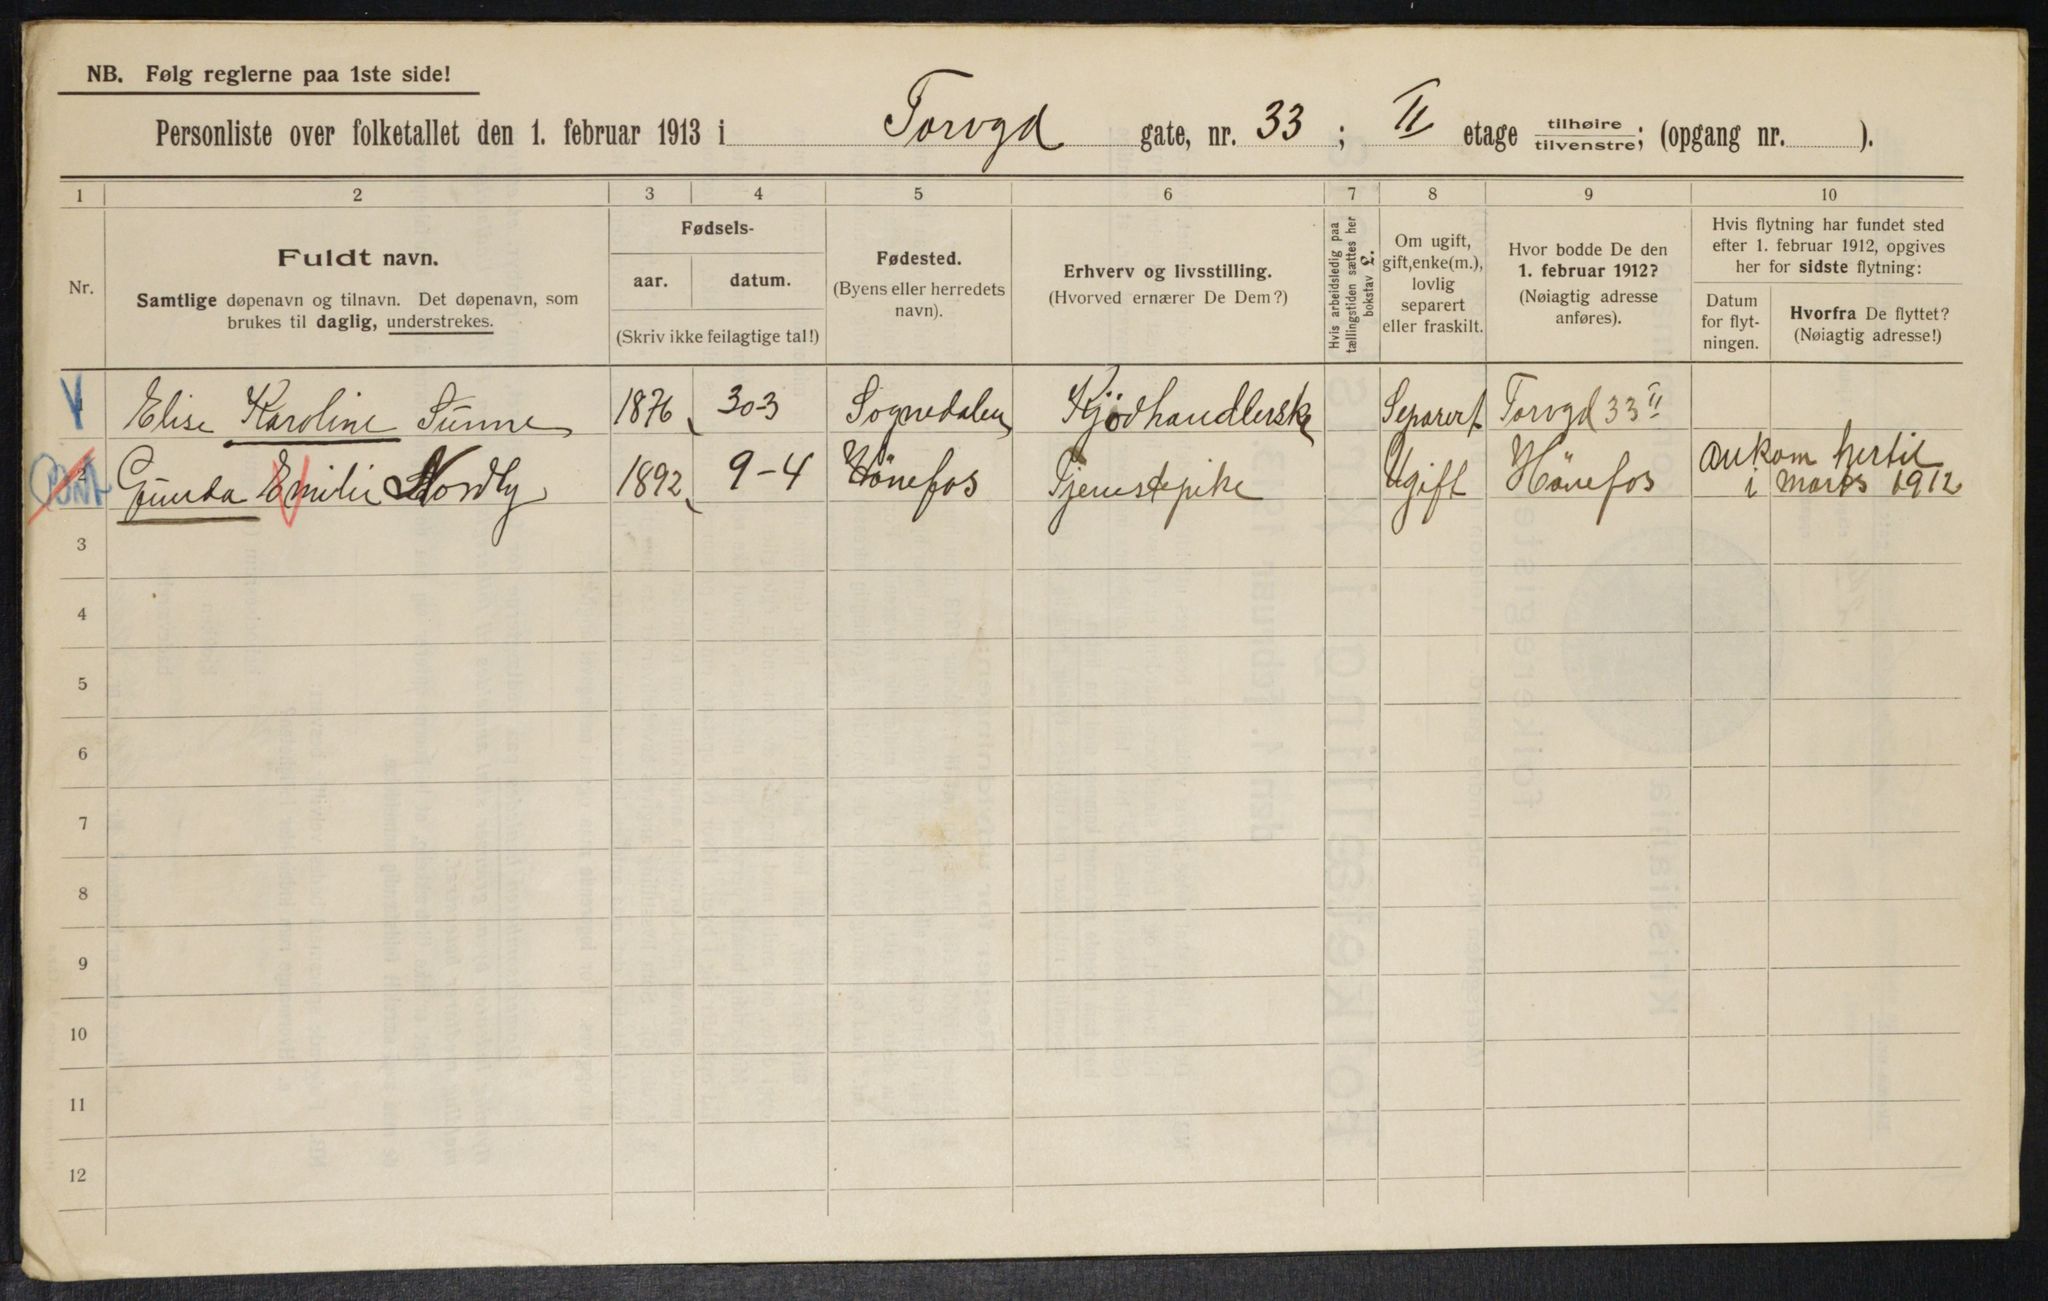 NB. Følg reglerne paa 1ste side!
Personliste over folketallet den 1. februar 1913 i Torvgd gate, nr. 33; II etage tilhøire tilvenstre; (opgang nr. ).
1 2 3 4 5 6 7 8 9 10
Nr.
Fuldt navn.
Samtlige døpenavn og tilnavn. Det døpenavn, som
brukes til daglig, understrekes.
Fødsels-
aar. datum.
(Skriv ikke feilagtige tal!)
Fødested.
(Byens eller herredets
navn).
Erhverv og livsstilling.
(Hvorved ernærer De Dem?)
Hvis arbeidsledig paa
tællingstiden sættes her
bokstav L.
Om ugift,
gift, enke(m.),
lovlig
separert
eller fraskilt.
Hvor bodde De den
1. februar 1912?
(Nøiagtig adresse
anføres).
Hvis flytning har fundet sted
efter 1. februar 1912, opgives
her for sidste flytning:
Datum
for flyt-
ningen.
Hvorfra De flyttet?
(Nøiagtig adresse!)
1 Elise Karoline Sunne 1876 30-3 Sognedalen Kjødhandlerske Separert Torvgd 33 II
2 Gunda Emilie Nordby 1892 9-4 Hönefos Tjenestepike Ugift Hönefos ankom hertil
i marts 1912
3
4
5
6
7
8
9
10
11
12